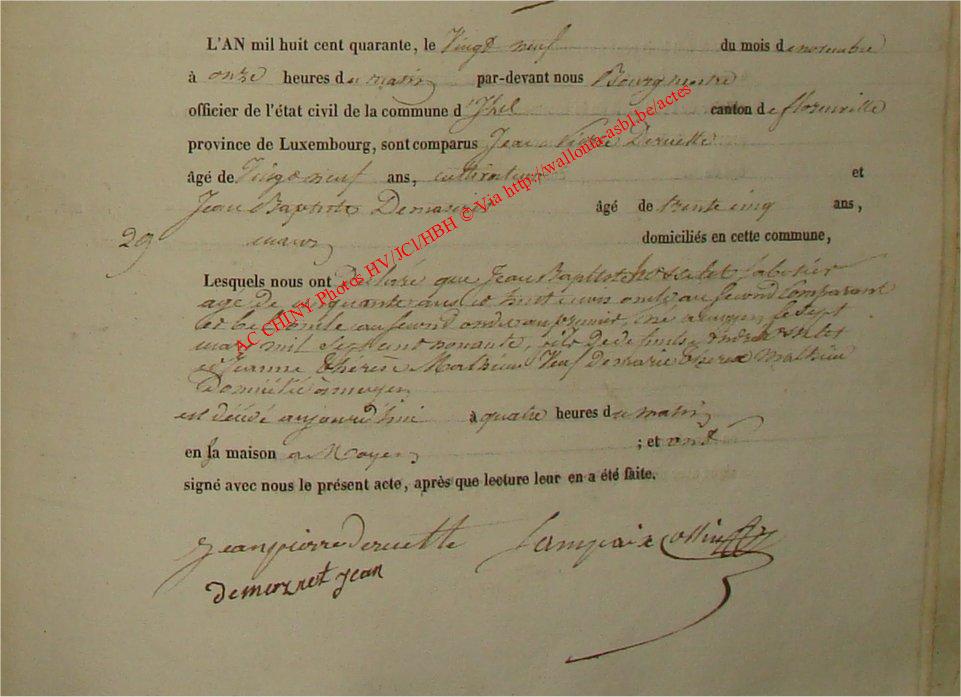 L'AN mil huit cent quarante, le Vingt neuf du mois de novembre
à onze heures du matin par-devant nous Bourgmestre
officier de l'état civil de la commune d'Jzel canton de florenville
province de Luxembourg, sont comparus Jean Pierre Deruette
âgé de Vingt neuf ans, cultivateur et
Jean Baptiste âgé de trente cinq ans,
29 domiciliés en cette commune,
Lesquels nous ont déclaré que Jean Baptiste sabotier
agé de cinquante ans au second Comparant
et oncle au premier, né a moyen le sept
mars mil sept cent nonante, fils de defunts
et Jeanne thérèse Mathieu Veuf de marie Mathieu
Domicilié a moyen
est décédé aujourd'hui à quatre heures du matin
en sa maison a Moyen ; et ont
signé avec nous le présent acte, après que lecture leur en a été faite.
jean pierre deruette
jean
AC CHINY Photos HV/JCl/HBH © Via http://wallonia-asbl.be/actes